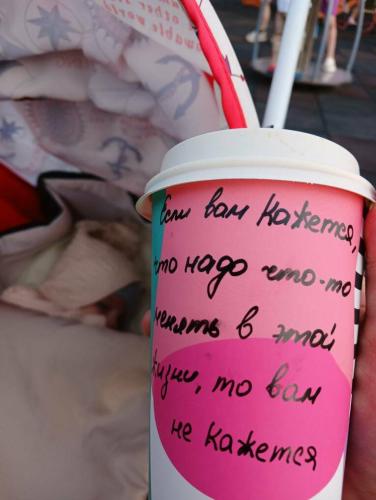 another
amable world
Если вам кажется,
что надо что-то
менять в этой
жизни, то вам
не кажется